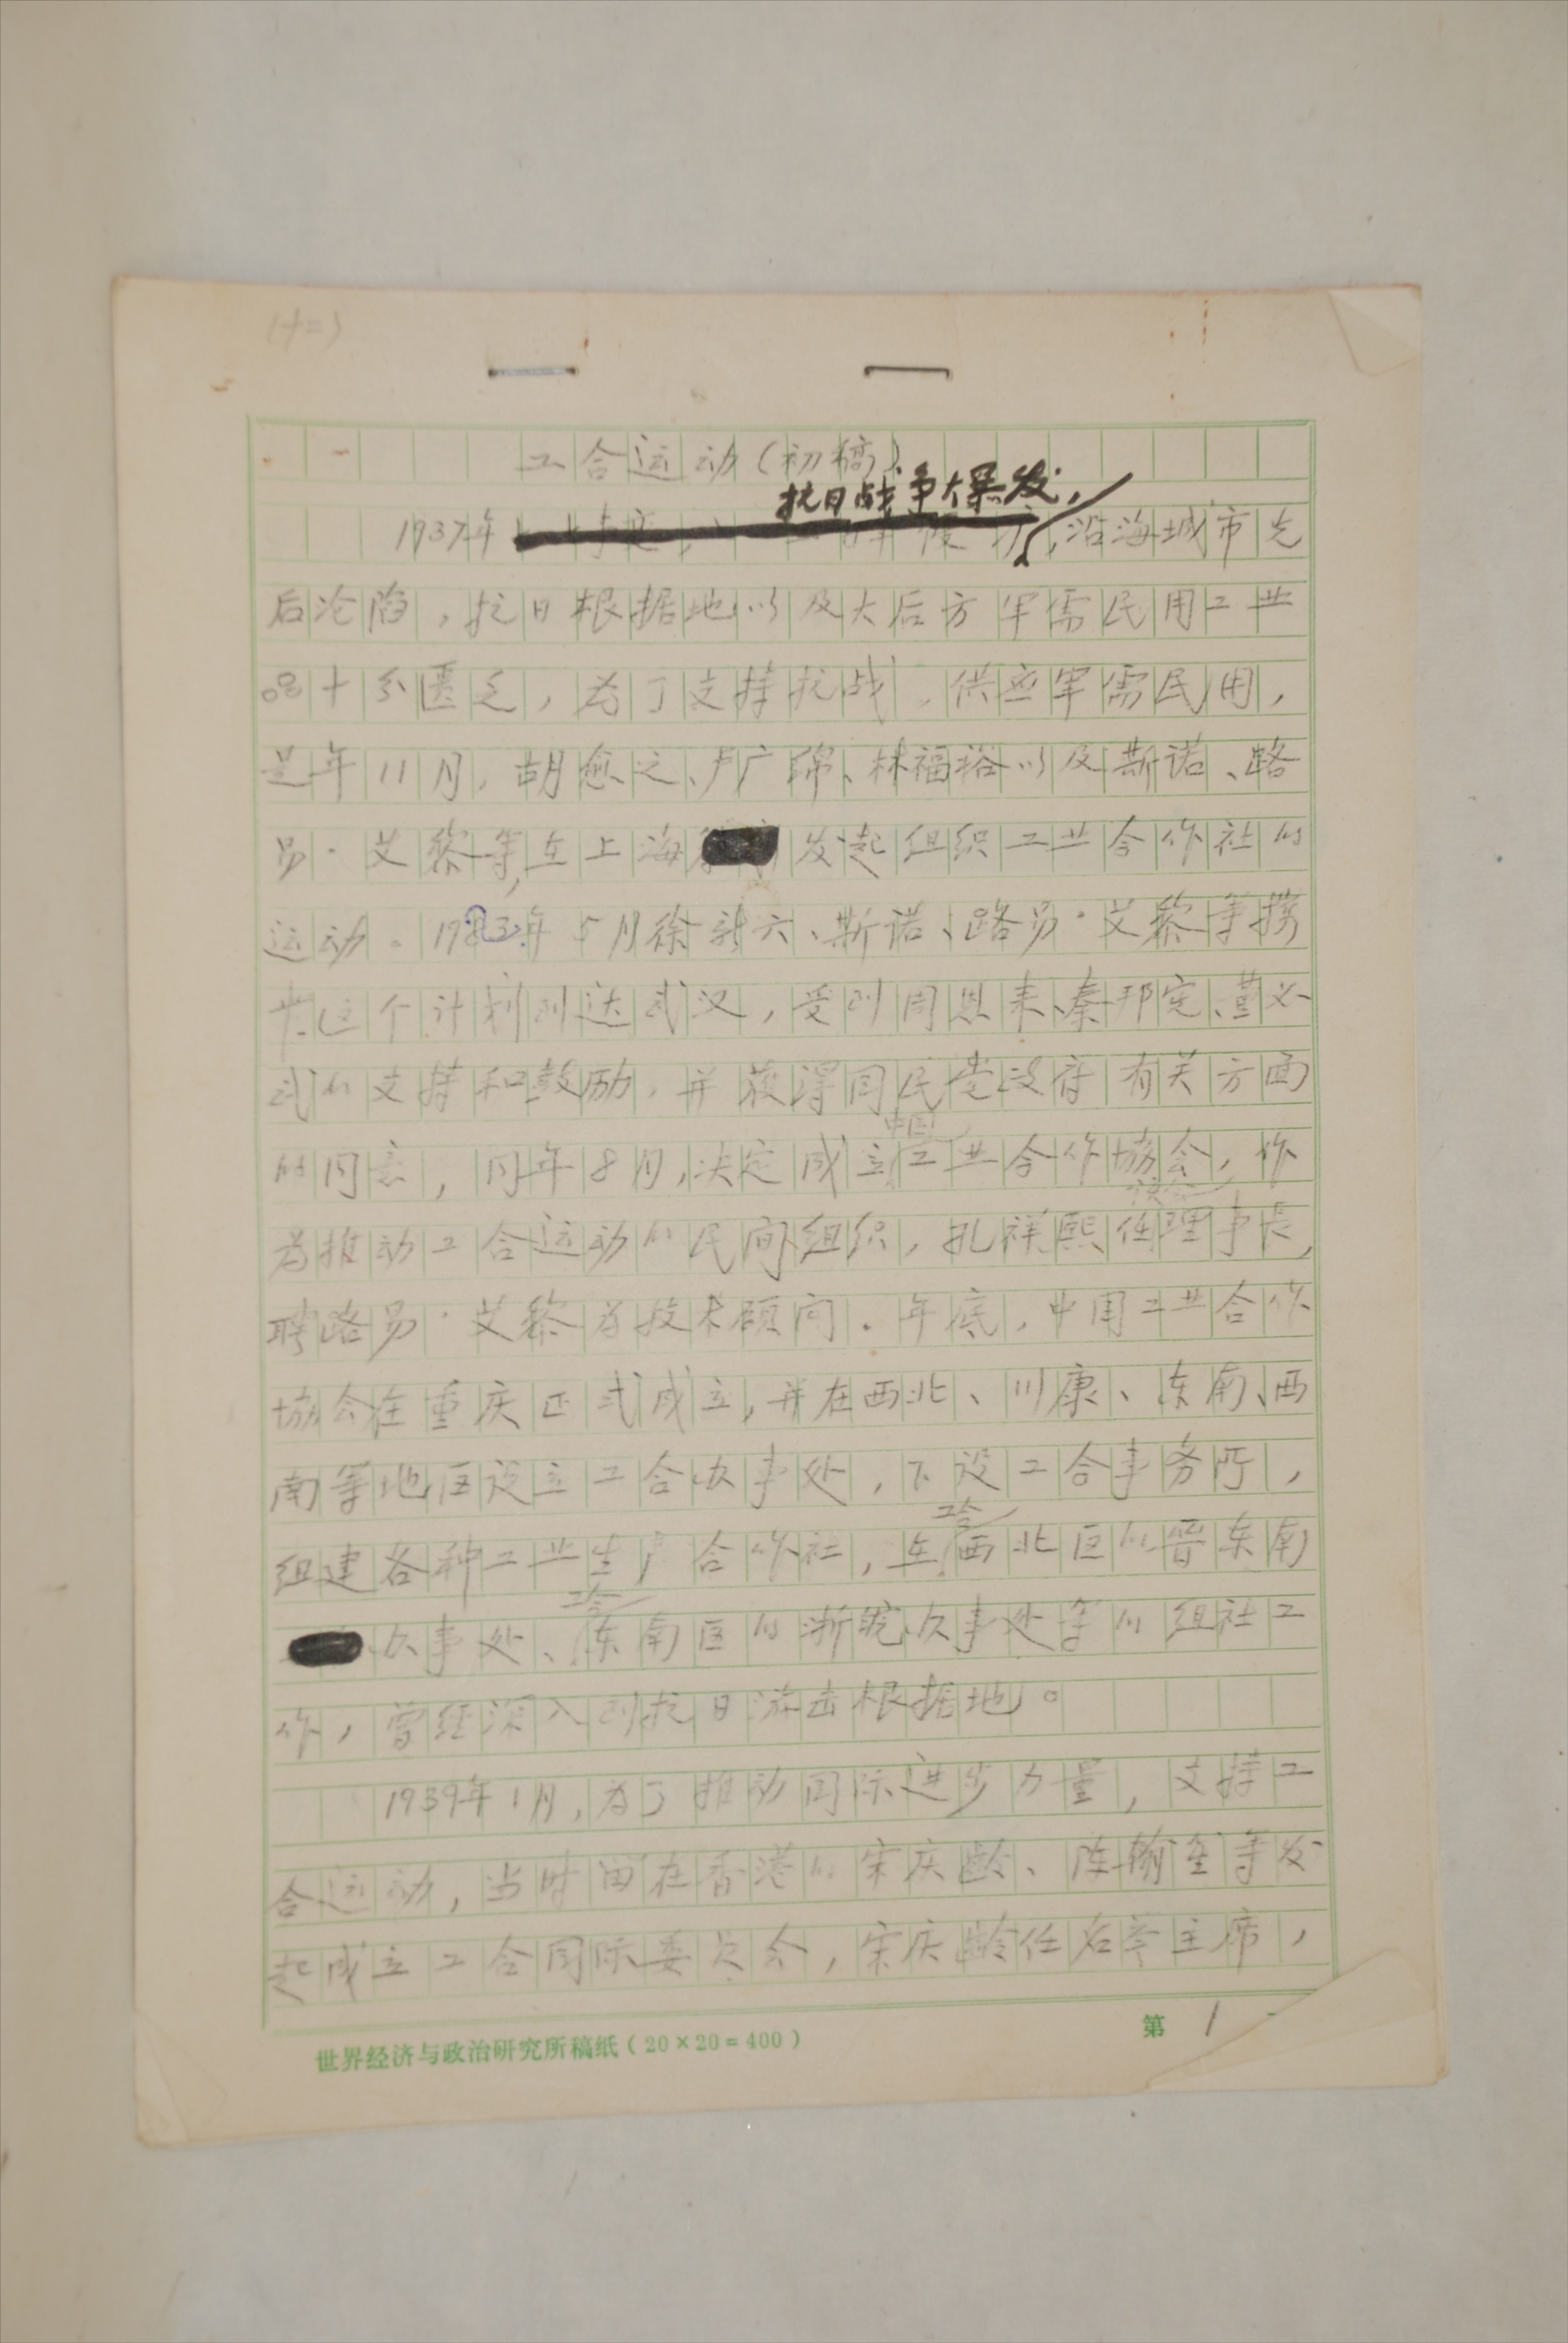 (十二)
工合运动(初稿)
抗日战争爆发,
1937年 沿海城市先
后沦陷,抗日根据地以及大后方军需民用工业
品十分匮乏,为了支持抗战,供应军需民用,
是年11月,胡愈之、卢广绵、林福裕以及斯诺、路
易·艾黎等,在上海 发起组织工业合作社的
运动。1983年5月徐新六、斯诺、路易·艾黎等携
带这个计划到达武汉,受到周恩来、秦邦宪、董必
武的支持和鼓励,并获得国民党政府有关方面
中国
的同意,同年8月,决定成立工业合作协会,作
为推动工合运动的民间组织,孔祥熙任理事长,
聘路易·艾黎为技术顾问。年底,中国工业合作
协会在重庆正式成立,并在西北、川康、东南、西
南等地区设立工合办事处,下设工合事务所,
工合
组建各种工业生产合作社,在西北区的晋东南
工合
办事处、东南区的浙皖办事处等的组社工
作,曾经深入到抗日游击根据地。
1939年1月,为了推动国际进步力量,支持工
合运动,当时留在香港的宋庆龄、陈翰笙等发
起成立工合国际委员会,宋庆龄任名誉主席,
世界经济与政治研究所稿纸(20×20=400)
第 1